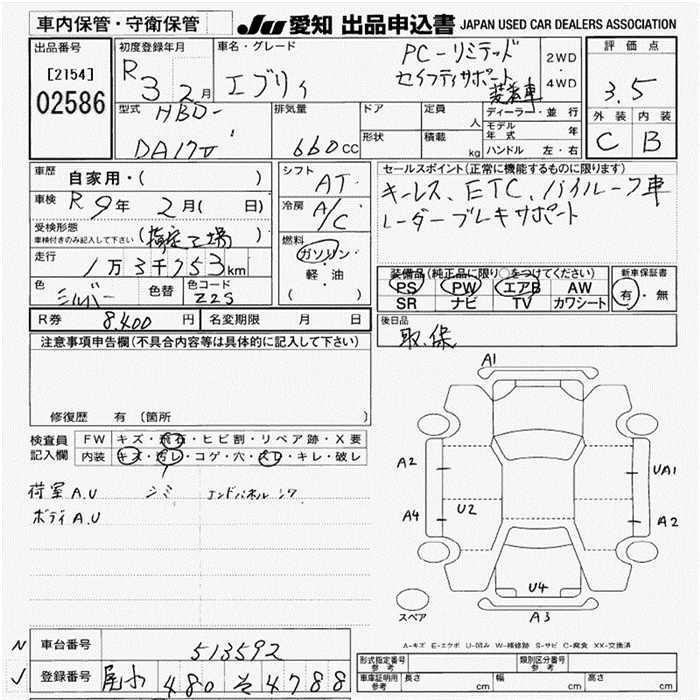 車内保管・守衛保管 JU 愛知 出品申込書 JAPAN USED CAR DEALERS ASSOCIATION
出品番号 初度登録年月 車名・グレード 評価点
[2154] R 3 2月 エブリィ PC-リミテッド 2WD
02586 セイフティサポート 装着車 ・4WD 3.5
型式 排気量 ドア 定員 人 ディーラー・並行 外装 内装
HBD- 形状 積載 kg モデル年式 年 C B
DA17V 660cc ハンドル 左・右
車歴 自家用・( ) シフト AT セールスポイント(正常に機能するものに限ります)
車検 R 9年 2月( 日) 冷房 A/C キーレス、ETC、ハイルーフ車
受検形態 レーダーブレーキサポート
車検付きのみ記入して下さい (指定工場) 燃料
走行 1万3千753km ガソリン・軽・油 ( )
装備品(純正品に限り○をつけてください) 新車保証書
PS PW エアB AW 有・無
色 シルバー 色替 色コード Z2S SR ナビ TV カワシート
R券 8,400円 名変期限 月 日 後日品
取.保
注意事項申告欄(不具合内容等は具体的に記入して下さい)
修復歴 有 (箇所 )
検査員記入欄 FW キズ・飛石・ヒビ割・リペア跡・X要
内装 キズ・汚レ・コゲ・穴・スレ・キレ・破レ
荷室A.U シミ エンドパネルシワ
ボディA.U
A1
A2 UA1
A4 U2 A2
U4
スペア A3
A-キズ E-エクボ U-凹み W-補修跡 S-サビ C-腐食 XX-交換済
N 車台番号 513592
✓ 登録番号 尾小 480 そ 4788
形式指定番号 参考 類別区分番号 参考
車庫証明用 参考 長さ cm 幅 cm 高さ cm